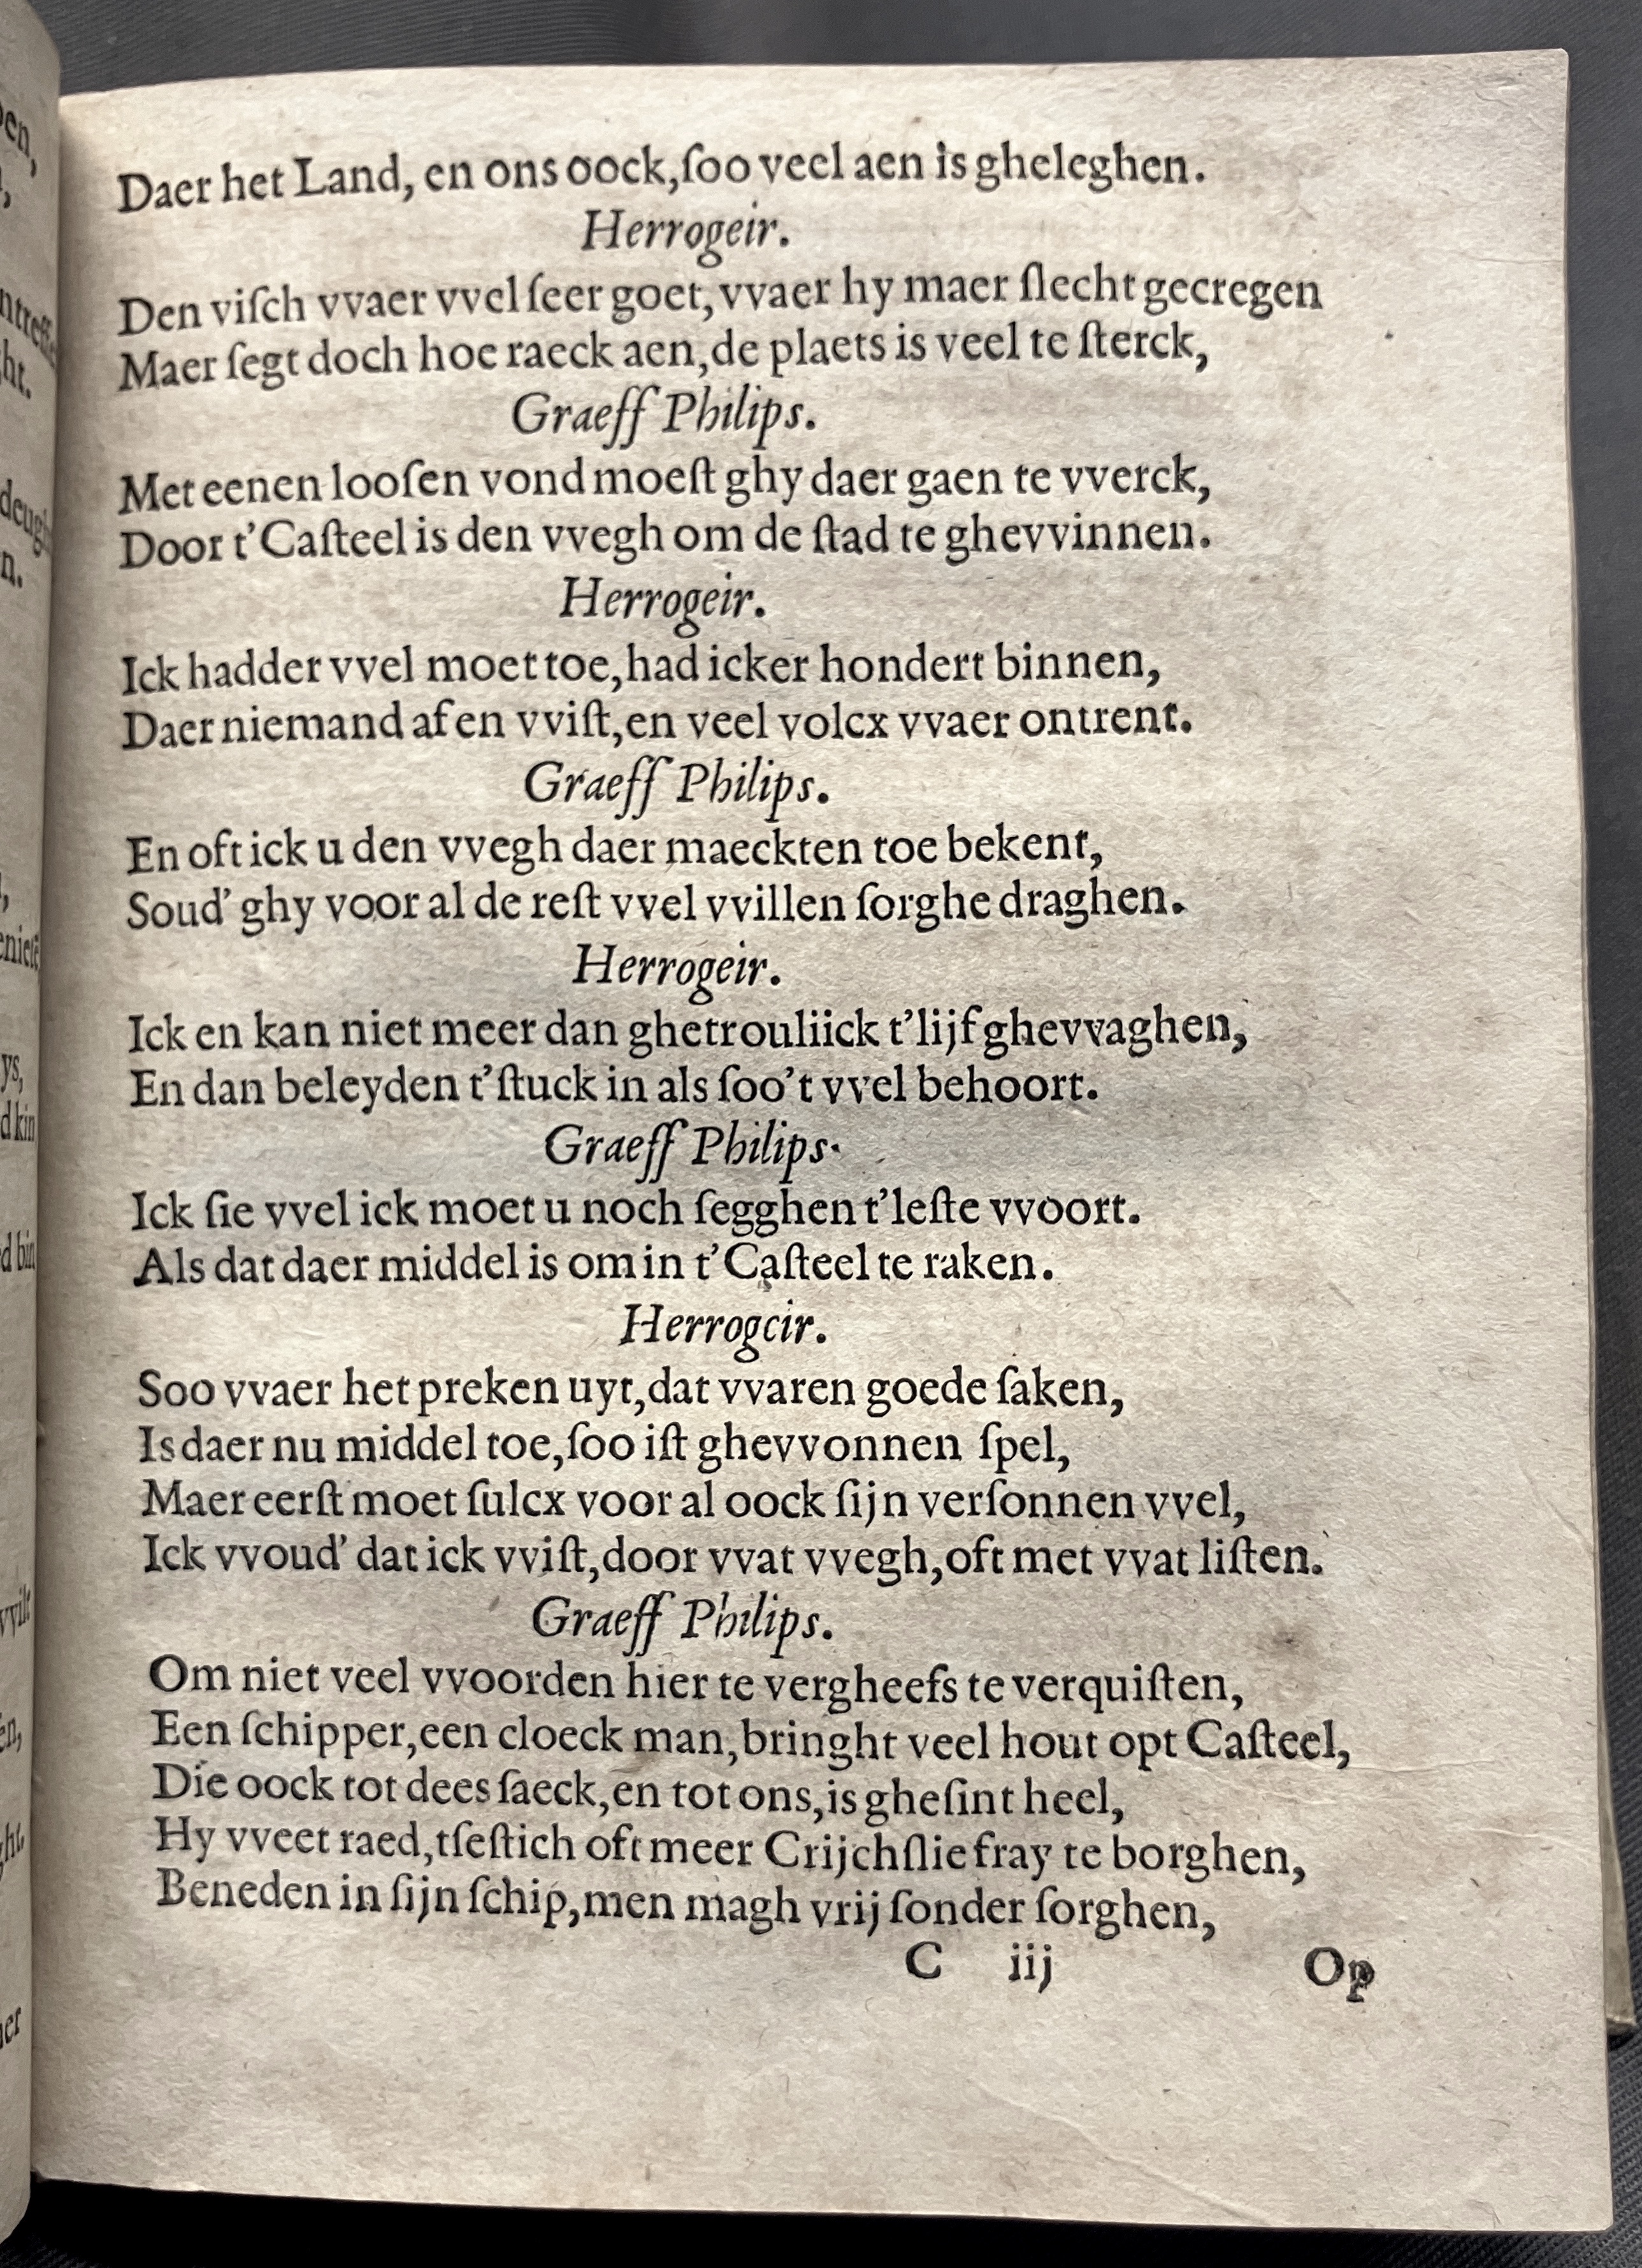 Daer het Land, en ons oock, ſoo veel aen is gheleghen.
Herrogeir.
Den viſch vvaer vvel ſeer goet, vvaer hy maer ſlecht gecregen
Maer ſegt doch hoe raeck aen, de plaets is veel te ſterck,
Graeff Philips.
Met eenen looſen vond moeſt ghy daer gaen te vverck,
Door t'Caſteel is den vvegh om de ſtad te ghevvinnen.
Herrogeir.
Ick hadder vvel moet toe, had icker hondert binnen,
Daer niemand af en vviſt, en veel volcx vvaer ontrent.
Graeff Philips.
En oft ick u den vvegh daer maeckten toe bekent,
Soud' ghy voor al de reſt vvel vvillen ſorghe draghen.
Herrogeir.
Ick en kan niet meer dan ghetrouliick t'lijf ghevvaghen,
En dan beleyden t'ſtuck in als ſoo't vvel behoort.
Graeff Philips.
Ick ſie vvel ick moet u noch ſegghen t'leſte vvoort.
Als dat daer middel is om in t'Caſteel te raken.
Herrogeir.
Soo vvaer het preken uyt, dat vvaren goede ſaken,
Is daer nu middel toe, ſoo iſt ghevvonnen ſpel,
Maer eerſt moet ſulcx voor al oock ſijn verſonnen vvel,
Ick vvoud' dat ick vviſt, door vvat vvegh, oft met vvat liſten.
Graeff Philips.
Om niet veel vvoorden hier te vergheefs te verquiſten,
Een ſchipper, een cloeck man, bringht veel hout opt Caſteel,
Die oock tot dees ſaeck, en tot ons, is gheſint heel,
Hy vveet raed, tſeſtich oft meer Crijchſlie fray te borghen,
Beneden in ſijn ſchip, men magh vrij ſonder ſorghen,
C iij Op